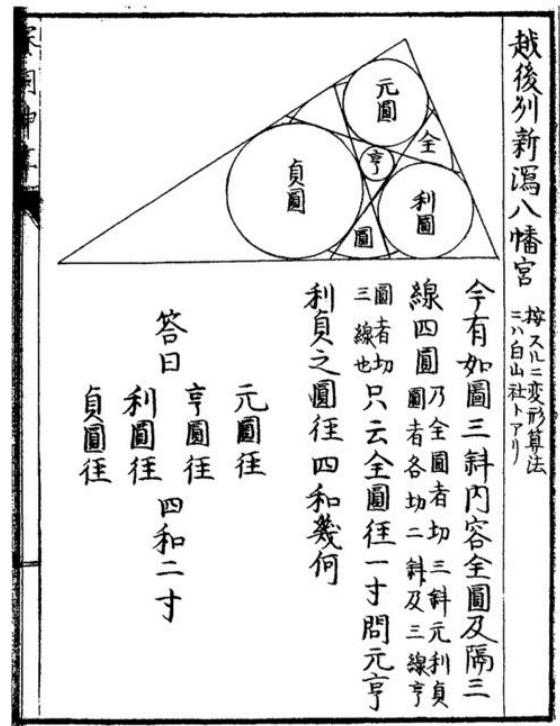 越後州新瀉八幡宮
按スルニ変形算法
ニハ白山社トアリ
元圓
全
亨
貞圓
利圓
圓
今有如圖三斜内容全圓及隔三
線四圓
乃全圓者切三斜元利貞
圓者各切二斜及三線亨
圓者切
三線也
只云全圓径一寸問元亨
利貞之圓径四和幾何
答曰
元圓径
亨圓径
利圓径
貞圓径
四和二寸